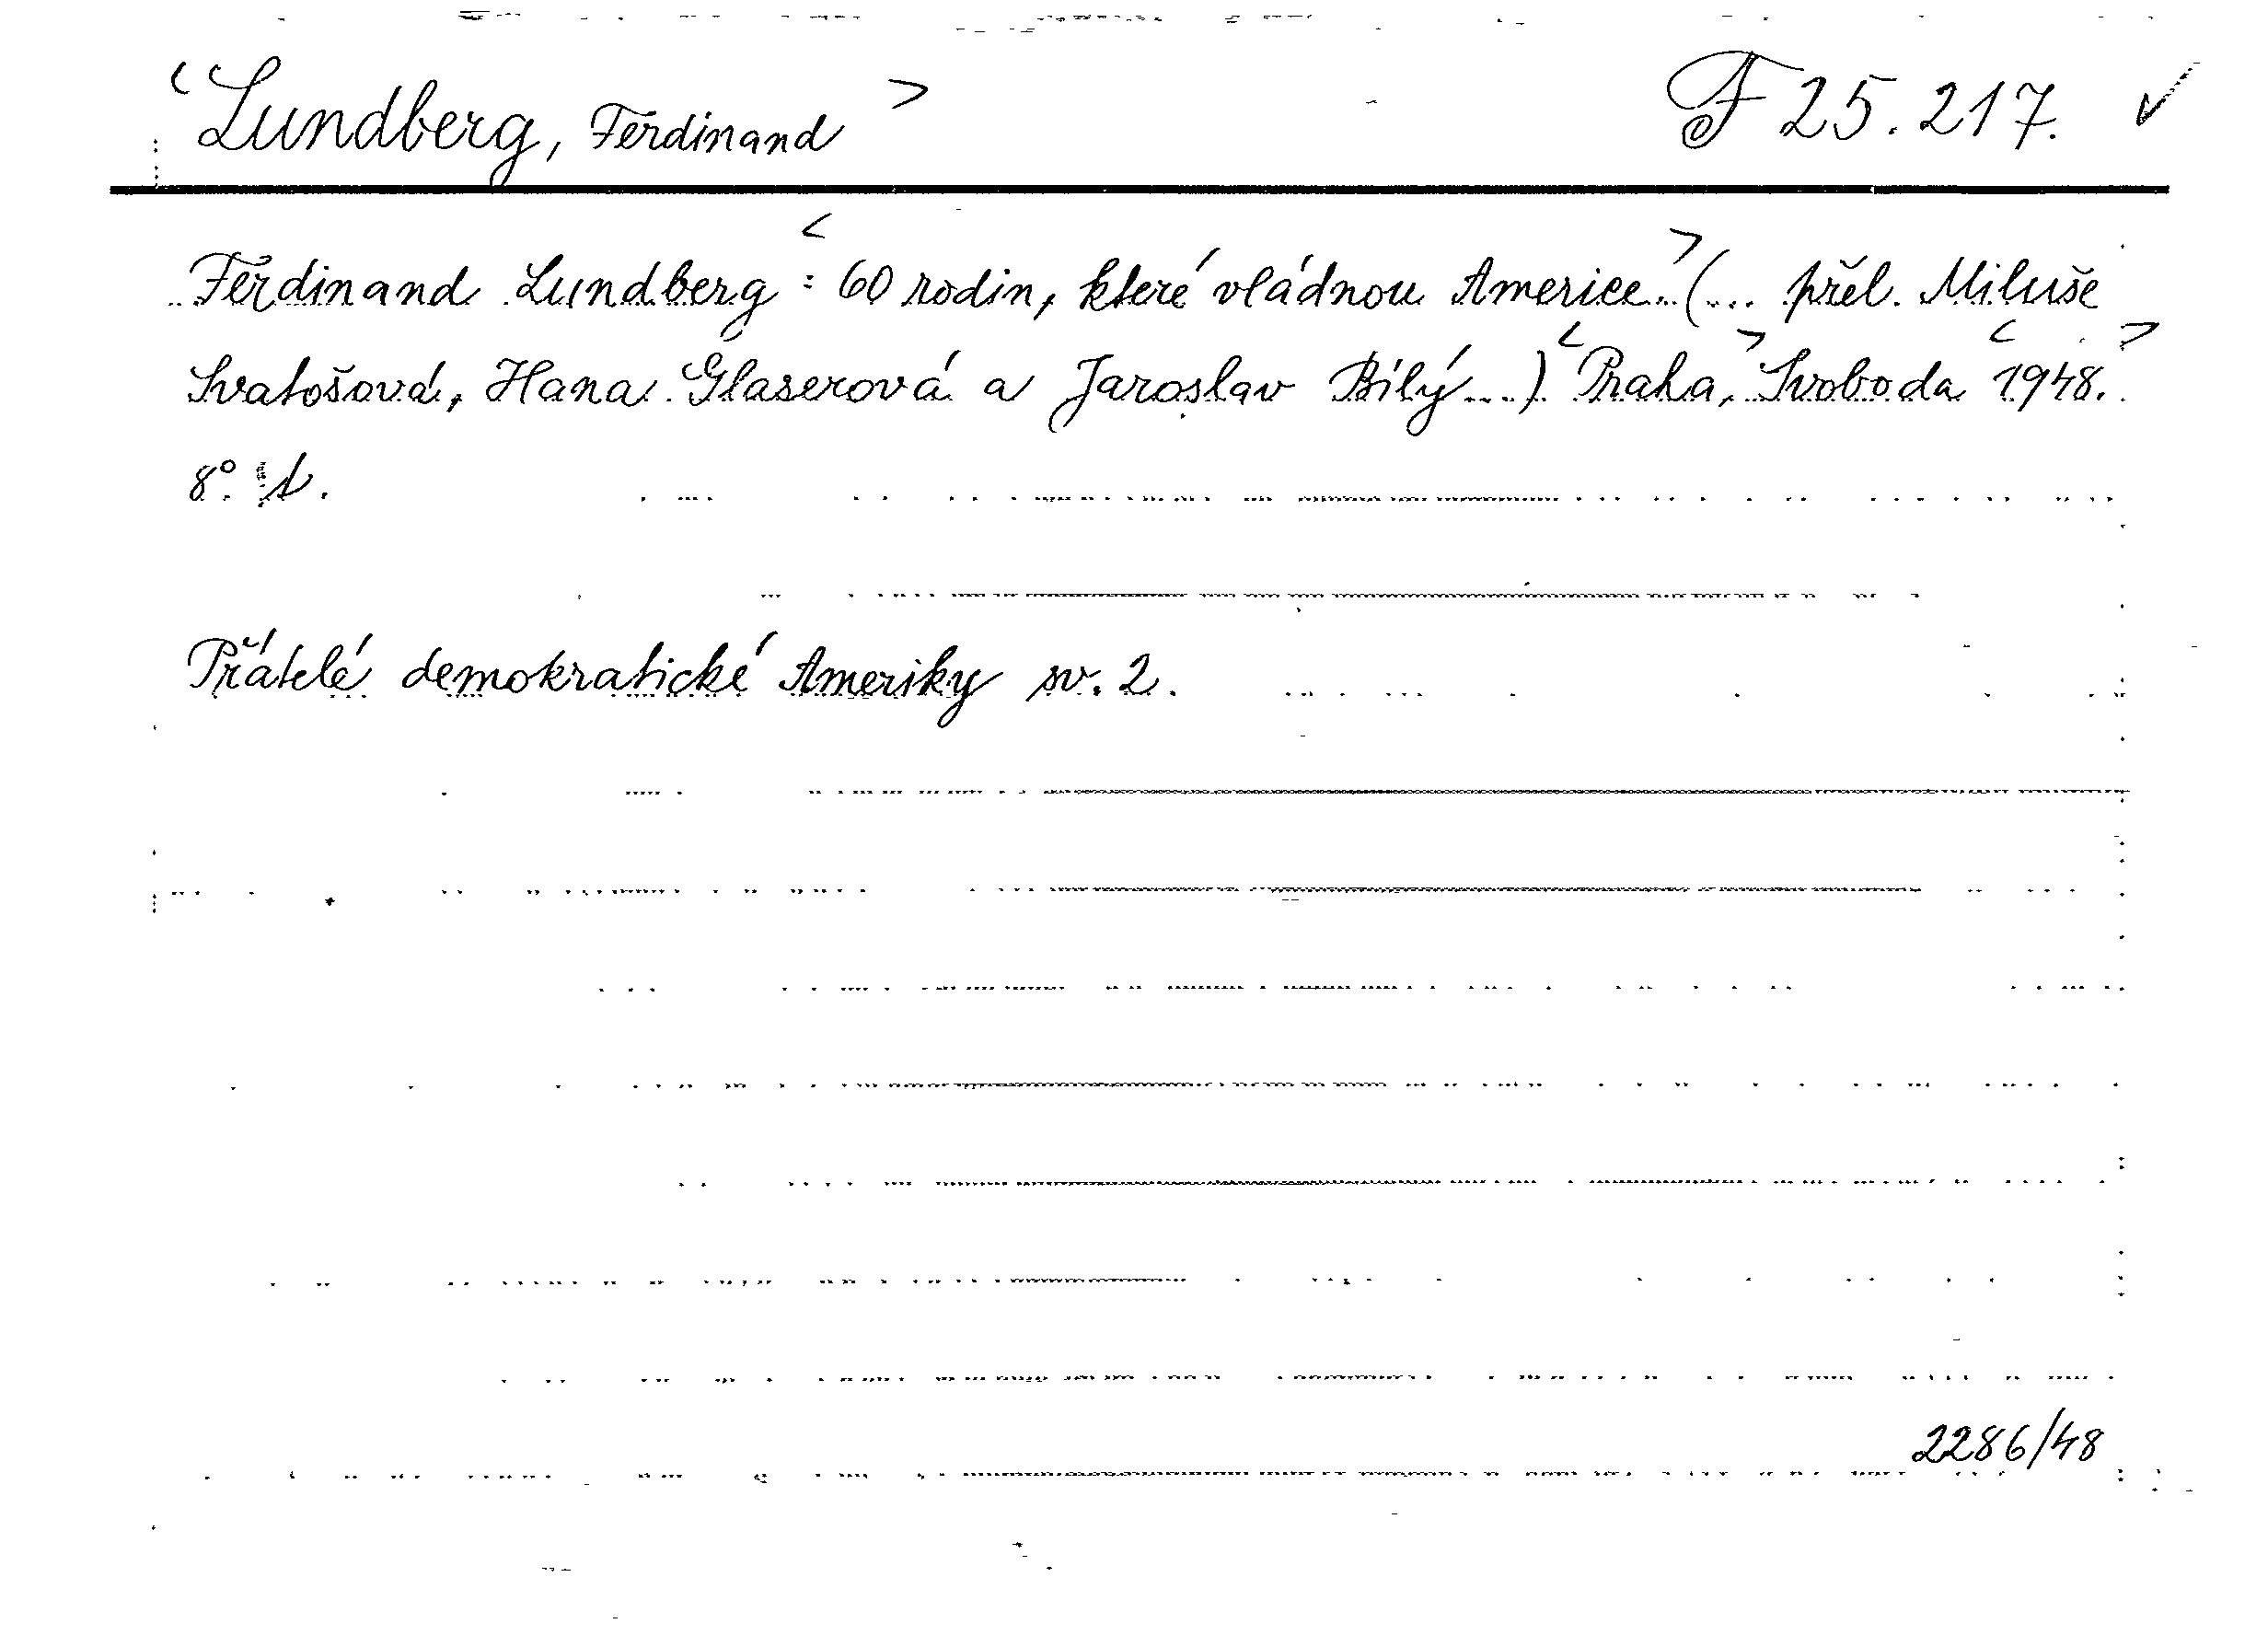 <Lundberg, Ferdinand> F 25.217. ✓
Ferdinand Lundberg: <60 rodin, které vládnou Americe> (... přel. Miluše
Svatošová, Hana Glaserová a Jaroslav Bílý...) <Praha,> Svoboda <1948.>
8°. s.
Přátelé demokratické Ameriky sv. 2.
2286/48